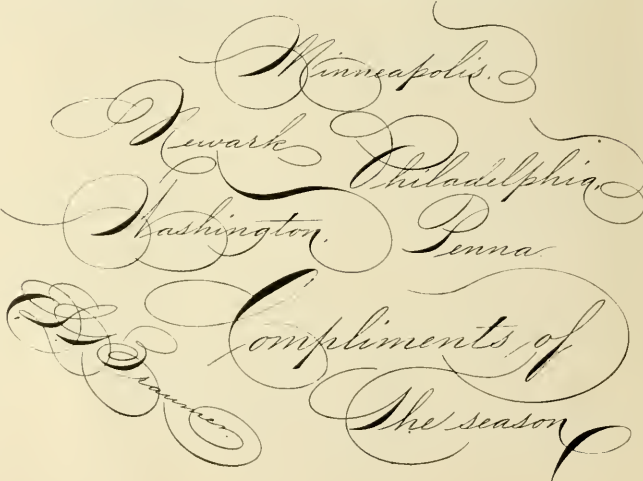 Minneapolis.
Newark
Philadelphia,
Washington.
Penna.
Compliments of
The season